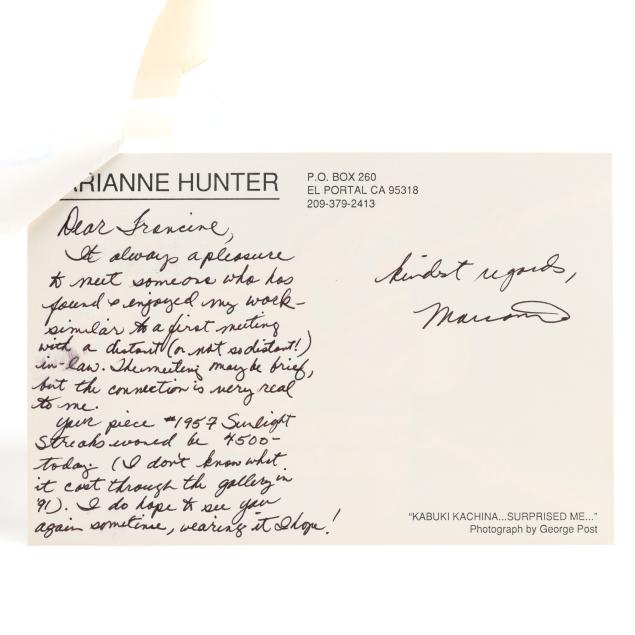 ARIANNE HUNTER
P.O. BOX 260
EL PORTAL CA 95318
209-379-2413
Dear Francine,
It always a pleasure
to meet someone who has
found & enjoyed my work–
similar to a first meeting
with a distant (or not so distant!)
in-law. The meeting may be brief,
but the connection is very real
to me.
Your piece #1957 Sunlight
Streaks would be 4500–
today. (I don't know what
it cost through the gallery in
'91). I do hope to see you
again sometime, wearing it I hope!
kindest regards,
Marianne
"KABUKI KACHINA...SURPRISED ME..."
Photograph by George Post